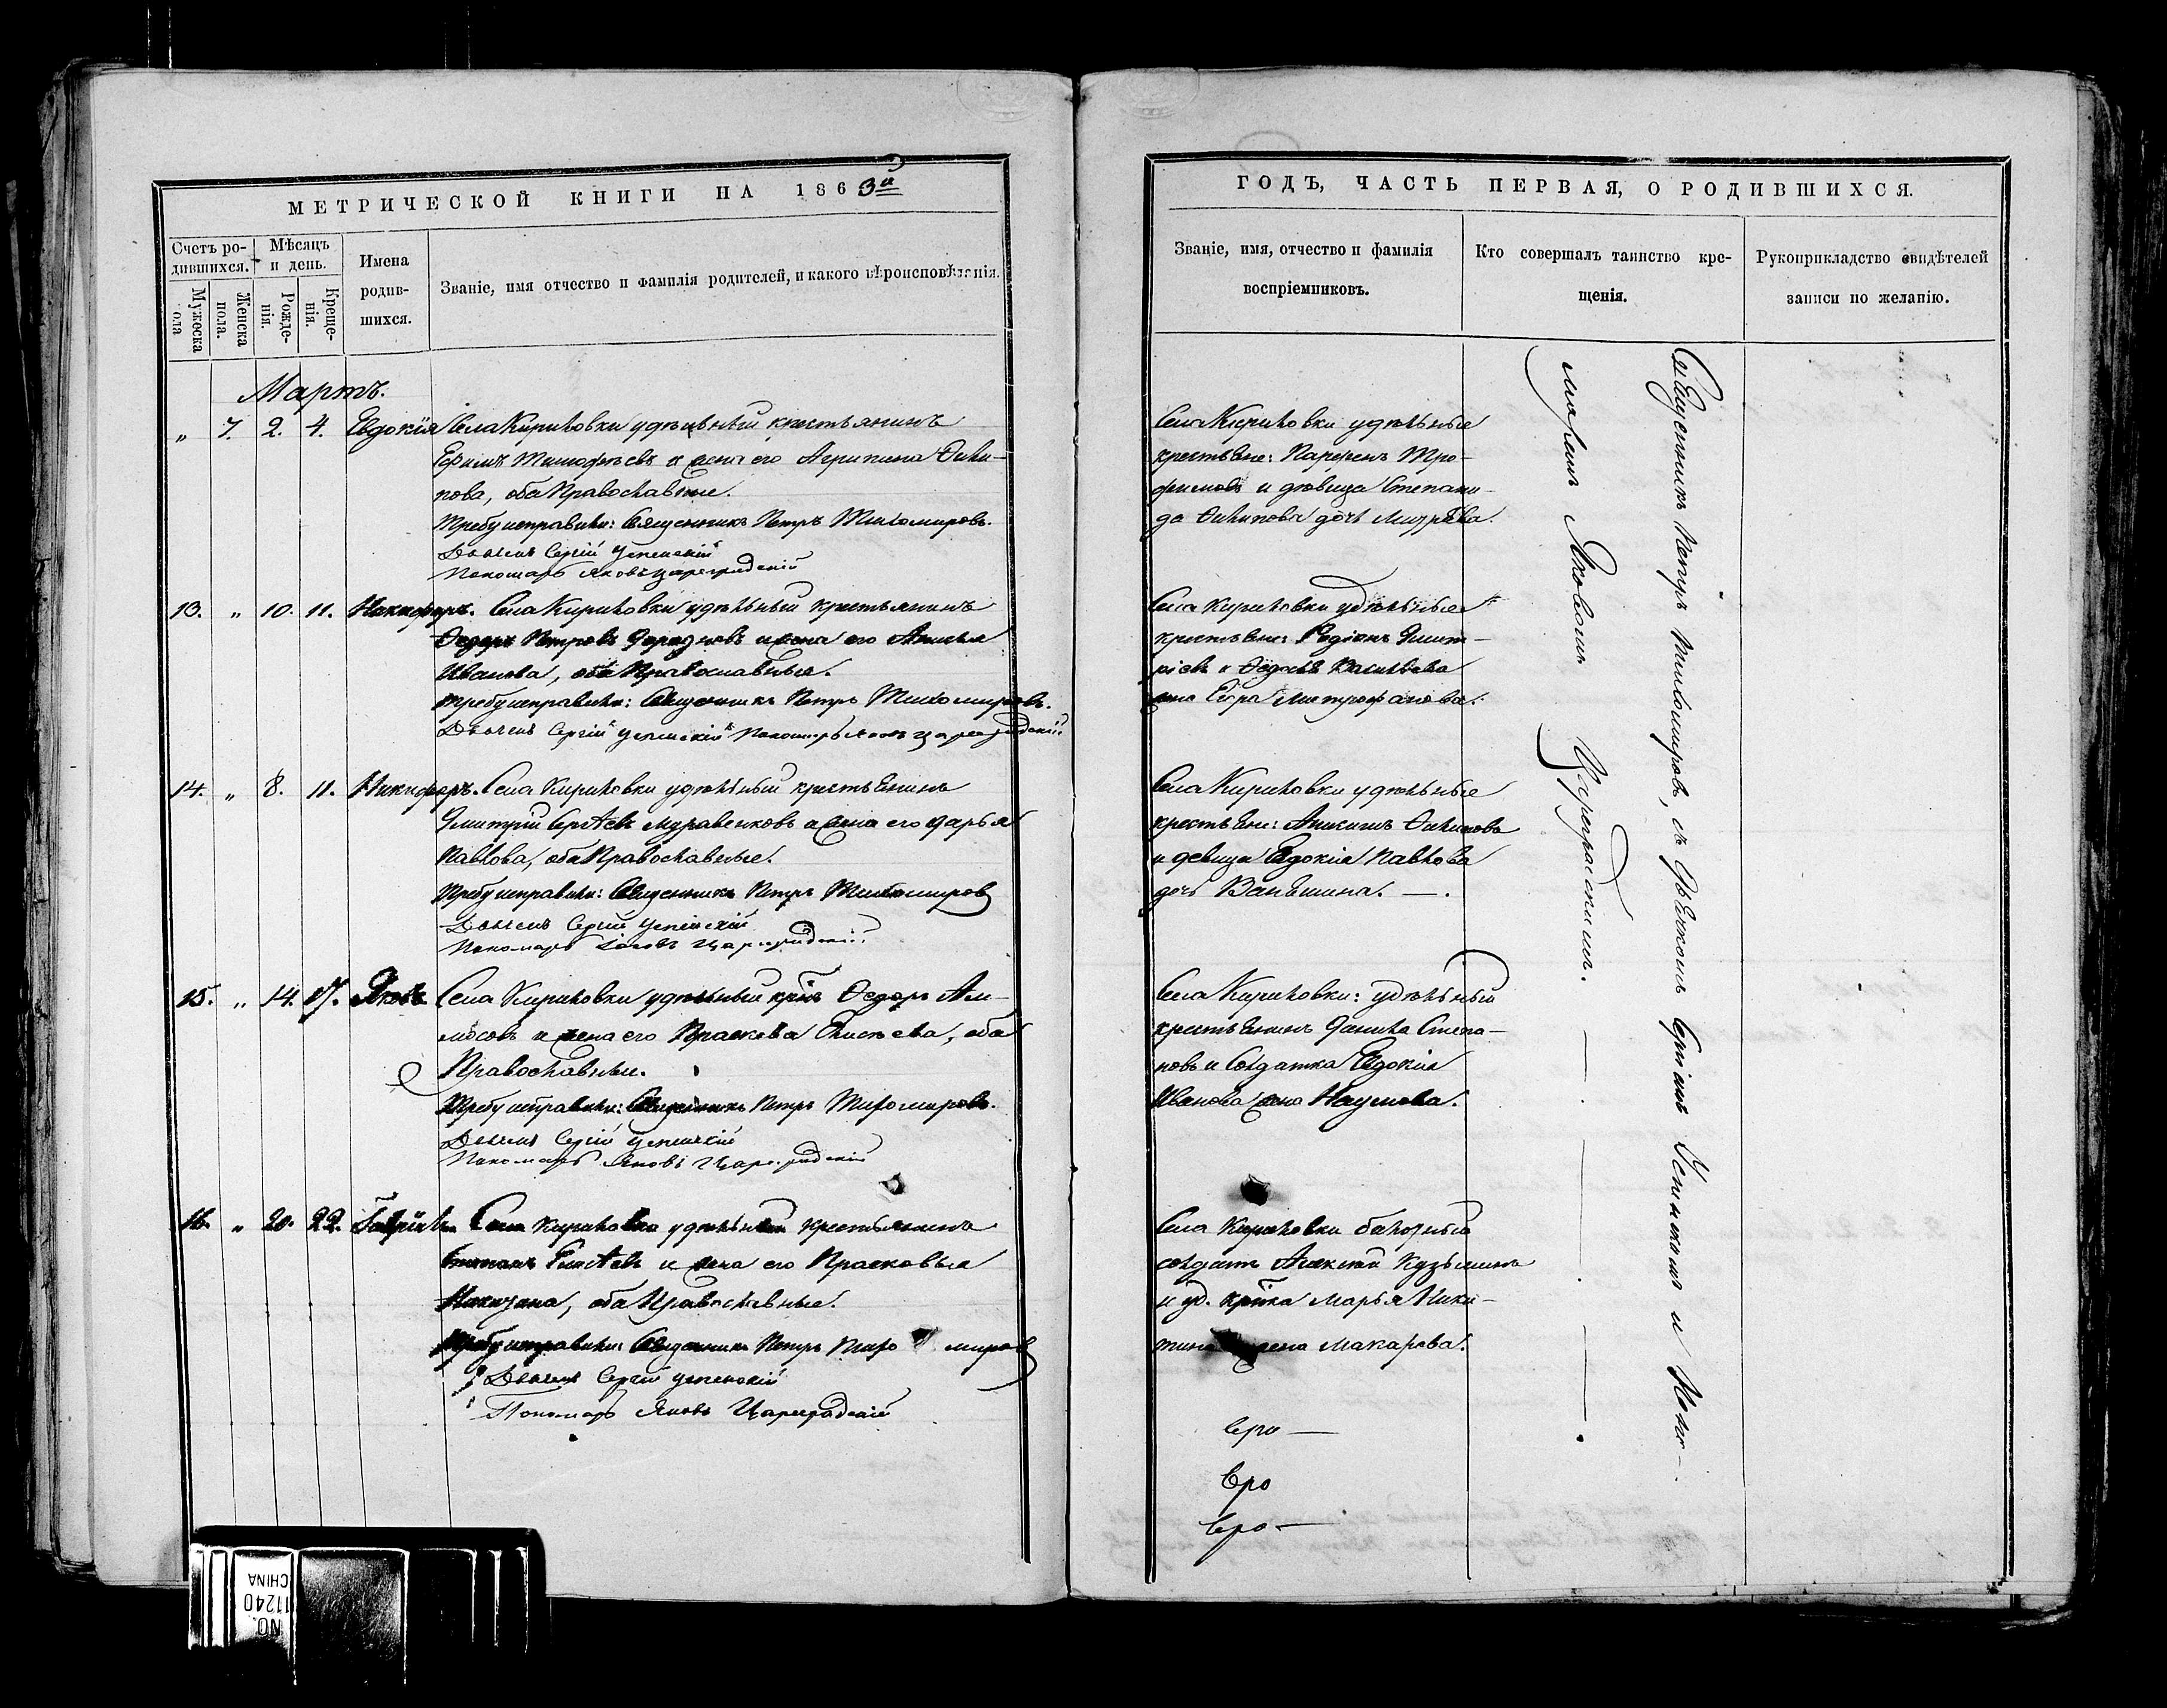 МЕТРИЧЕСКОЙ КНИГИ НА 1863й
Счетъ ро-
дившихся.
Мѣсяцъ
и день.
Имена
родив-
шихся.
Званіе, имя отчество и фамилія родителей, и какого вѣроисповѣданія.
Мужеска
пола
Женска
пола.
Рожде-
нія.
Креще-
нія.
Мартъ.
„ 7. 2. 4. Евдокія Села Кириловки удѣльный крестьянинъ
Ефимъ Тимофѣевъ и жена его Агрипина Фили-
пова, оба Православные.
Требу исправили: Священникъ Петръ Тихомировъ.
Дьячекъ Сергій Успенскій
Пономарь Яковъ Цареградскій
13. „ 10. 11. Никифоръ. Села Кириловки удѣльный крестьянинъ
Ѳедоръ Петровъ и жена его
Иванова, оба Православные.
Требу исправили: Священникъ Петръ Тихомировъ.
Дьячекъ Сергій Успенскій Пономарь Яковъ Цареградскій
14. „ 8. 11. Никифоръ. Села Кириловки удѣльный крестьянинъ
Дмитрій Сергѣевъ Муравенковъ и жена его Дарья
Павлова, оба Православные.
Требу исправили: Священникъ Петръ Тихомировъ
Дьячекъ Сергій Успенскій
Пономарь Яковъ Цареградскій
15. „ 14. 17. Яковъ Села Кириловки удѣльный крнъ Ѳедоръ Ам-
мосовъ и жена его Праскева Елисѣева, оба
Православные.
Требу исправили: Священникъ Петръ Тихомировъ.
Дьячекъ Сергій Успенскій
Пономарь Яковъ Цареградскій
16. „ 20. 22. Гавріилъ Села Кириловки удѣльный крестьянинъ
Степанъ и жена его Прасковья
оба Православные.
Требу исправили: Священникъ Петръ Тихомировъ
Дьячекъ Сергій Успенскій
Пономарь Яковъ Цареградскій
ГОДЪ, ЧАСТЬ ПЕРВАЯ, О РОДИВШИХСЯ.
Званіе, имя, отчество и фамилія
воспріемниковъ.
Кто совершалъ таинство кре-
щенія.
Рукоприкладство свидѣтелей
записи по желанію.
Села Кириловки удѣльные
крестьяне: Парфенъ Тро-
фимовъ и дѣвица Степани-
да Филипова дочь
Села Кириловки удѣльные
крестьяне: Родіонъ Дмит-
ріевъ и Ѳедосья Васильева
жена Егора Митрофанова.
Села Кириловки удѣльные
крестьяне: Филиповъ
и девица Евдокія Павлова
дочь Ваньшина. —.
Села Кириловки: удѣльный
крестьянинъ Данила Степа-
новъ и Солдатка Евдокія
Иванова жена Наумова.
Села Кириловки
солдатъ Алексѣй Кузьминъ
и уд. крнка Марья Ники-
тина жена Макарова.
Священникъ Петръ Тихомировъ, съ Дьячкомъ Сергіемъ Успенскимъ и Поно-
маремъ Яковомъ Цареградскимъ.
NO.
11240
CHINA